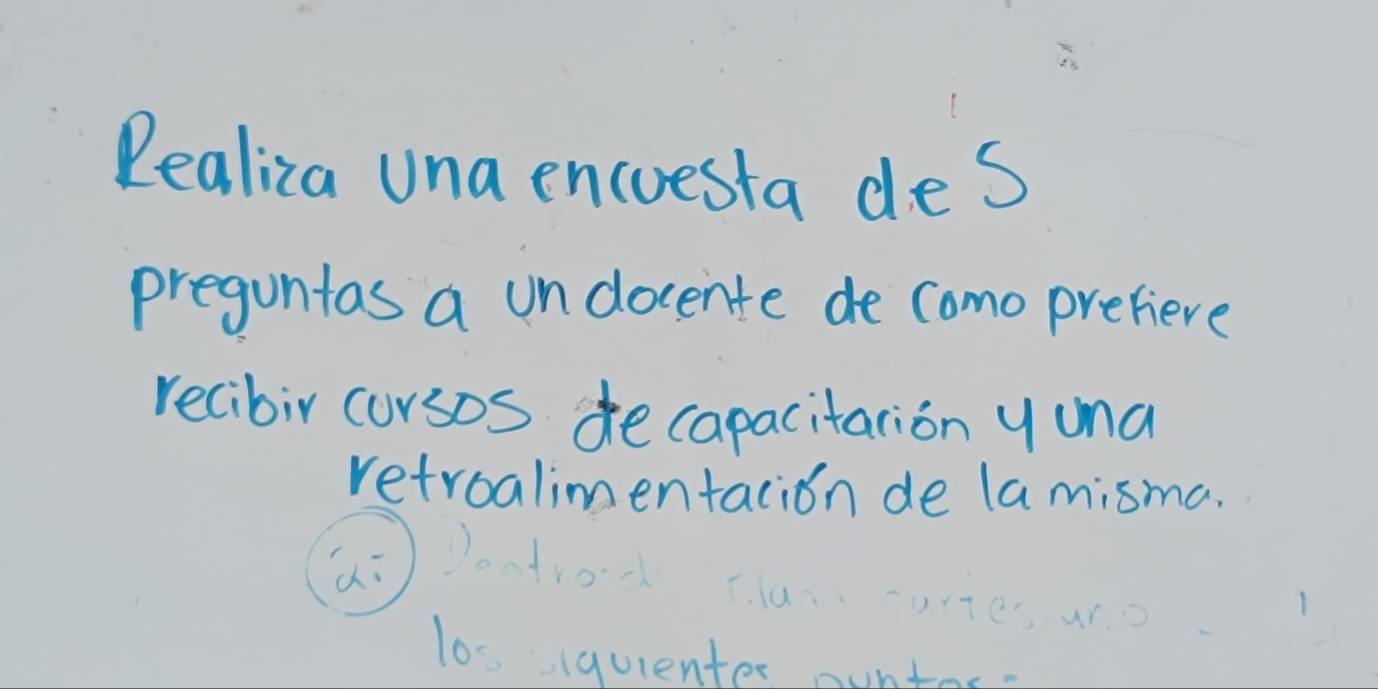 Realiza una encuesta de 5
preguntas a un docente de como prefiere
recibir cursos de capacitación y una
retroalimentación de la misma.
los siguientes puntos: